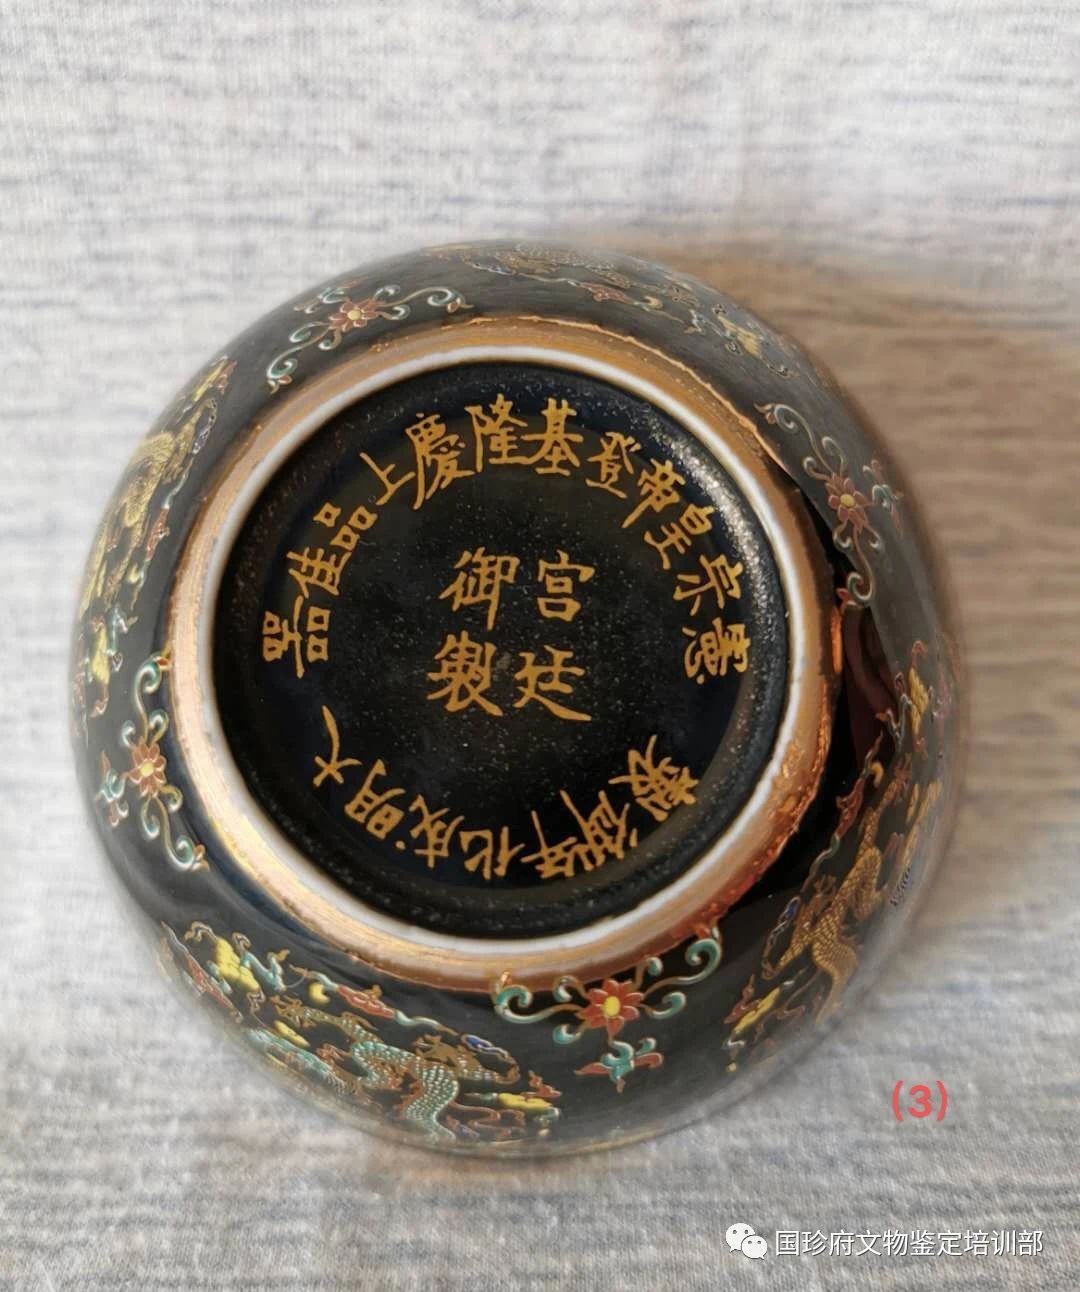 憲宗皇帝登基隆慶上品佳器
宫廷
御製
大明成化年御製
(3)
国珍府文物鉴定培训部